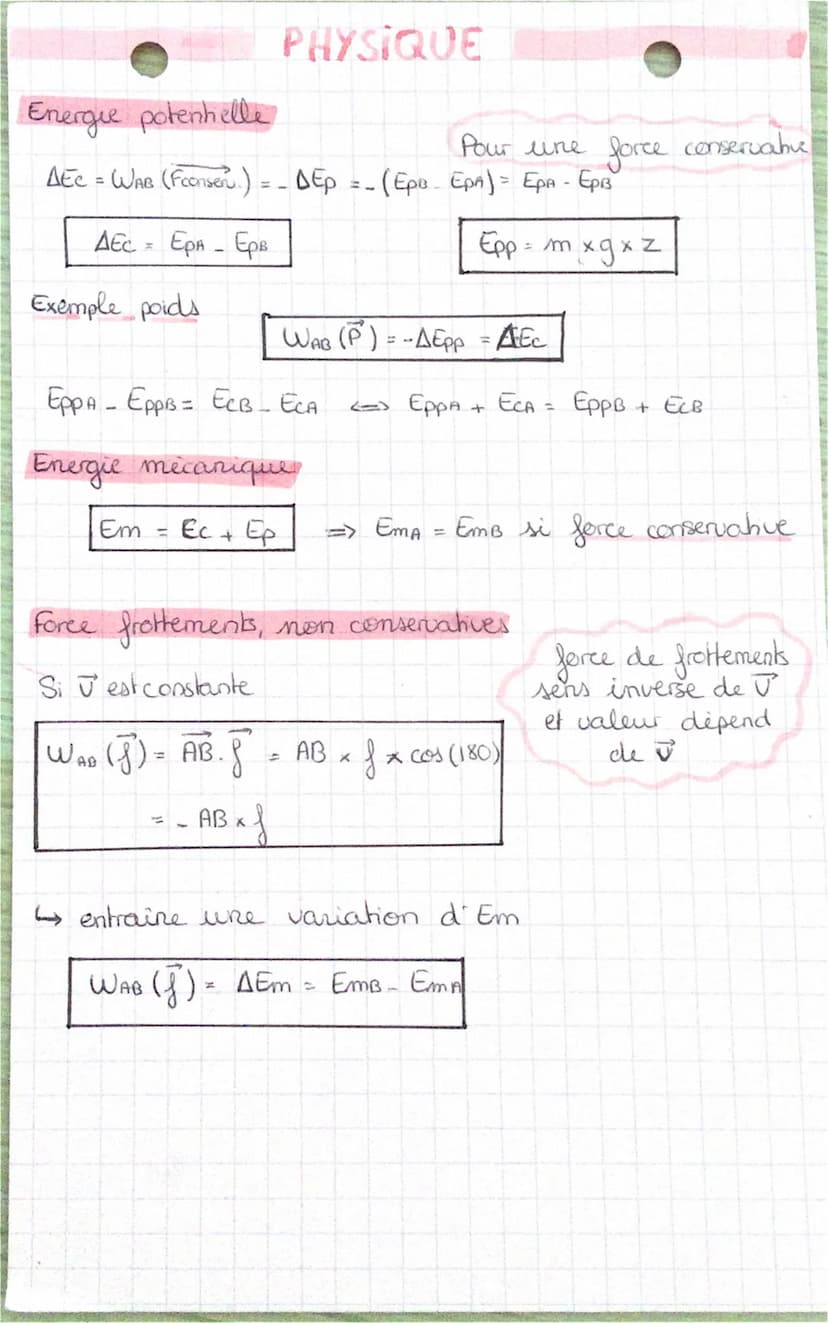 PHYSiQUE
Energie potentielle
Pour une force conservative
ΔEc = WAB (Fconserv.) = - ΔEp = - (EpB - EpA) = EpA - EpB
ΔEc = EpA - EpB
Epp = m × g × z
Exemple poids
WAB (P⃗) = -ΔEpp = ΔEc
EppA - EppB = EcB - EcA ⟺ EppA + EcA = EppB + EcB
Energie mécanique
Em = Ec + Ep ⇒ EmA = EmB si force conservative
Force frottements, non conservatives
force de frottements
sens inverse de v⃗
et valeur dépend
de v⃗
Si v⃗ est constante
WAB (f⃗) = AB⃗ . f⃗ = AB × f × cos(180)
= - AB × f
↳ entraine une variation d'Em
WAB (f⃗) = ΔEm = EmB - EmA